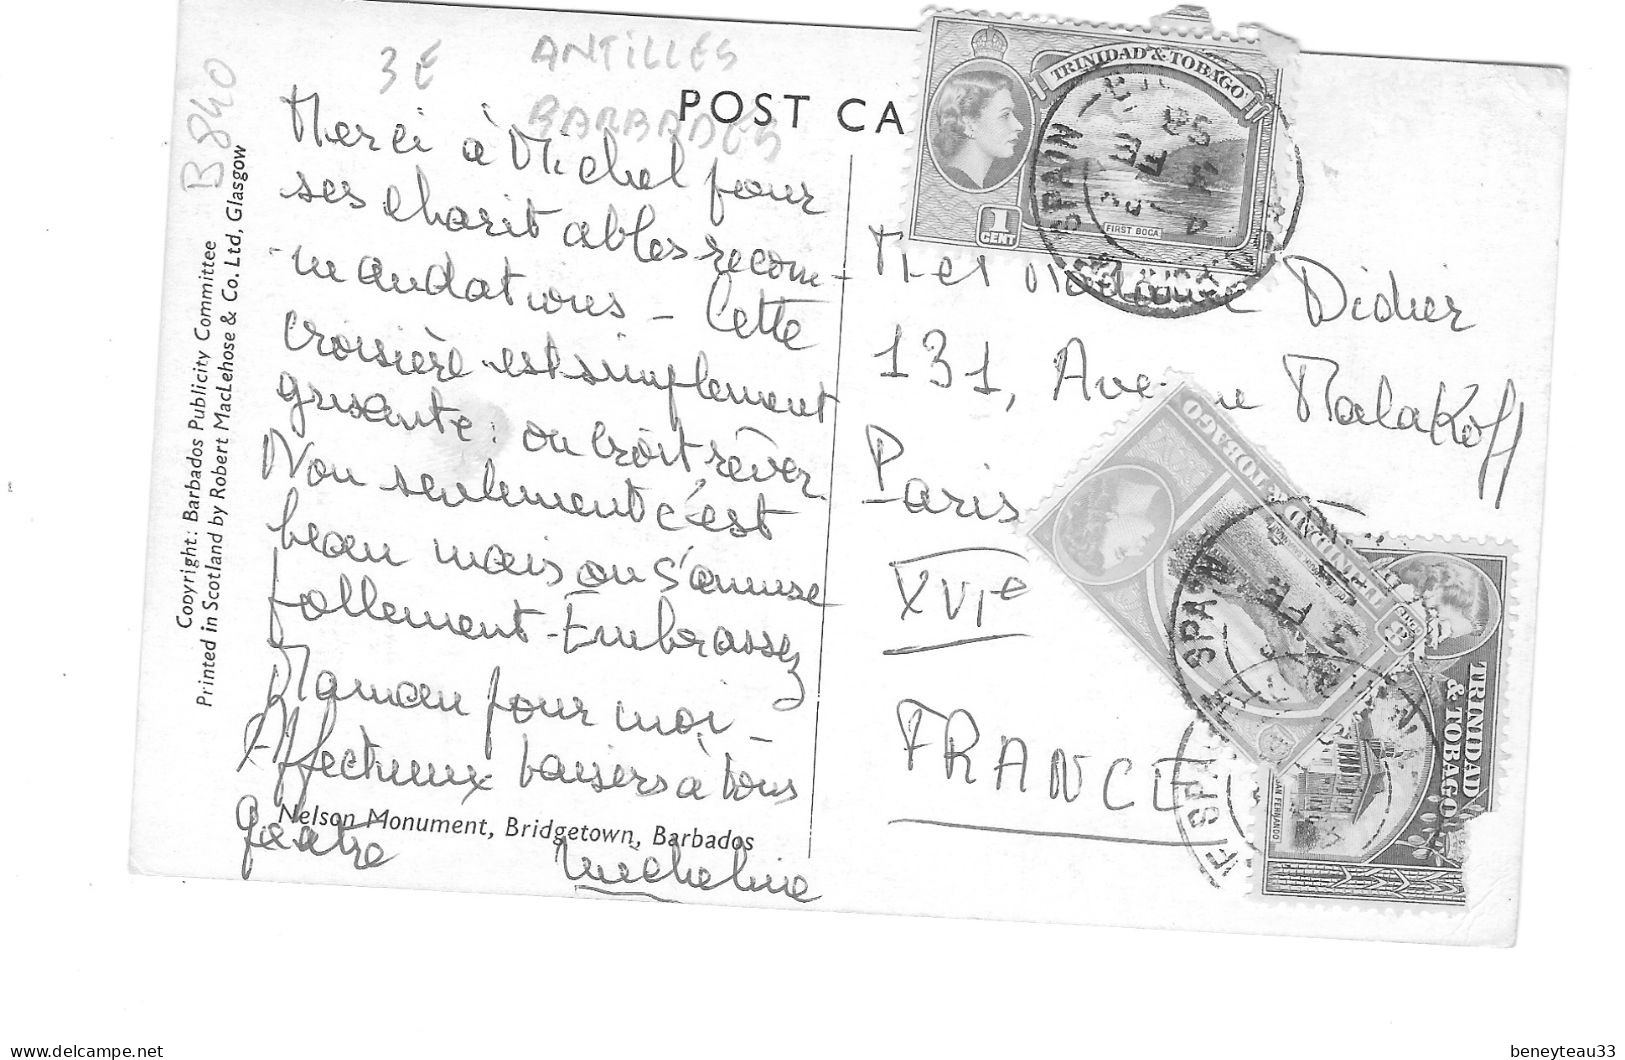 3E ANTILLES
BARBADES
B840
POST CA
Copyright: Barbados Publicity Committee
Printed in Scotland by Robert MacLehose & Co. Ltd, Glasgow
Merci à Michel pour
ses charitables recom-
-mandations - Cette
croisière est simplement
grisante : on croit rêver.
Non seulement c'est
beau mais on s'amuse
follement - Embrassez
Maman pour moi -
Affectueux baisers à tous
quatre
Micheline
Nelson Monument, Bridgetown, Barbados
TRINIDAD & TOBAGO
1 CENT
FIRST BOCA
SPAIN
FE
M et Madame Didier
131, Avenue Malakoff
Paris
XVIe
FRANCE
TRINIDAD & TOBAGO
SPAIN
FE
TRINIDAD
& TOBAGO
SAN FERNANDO
F SPA
beneyteau33